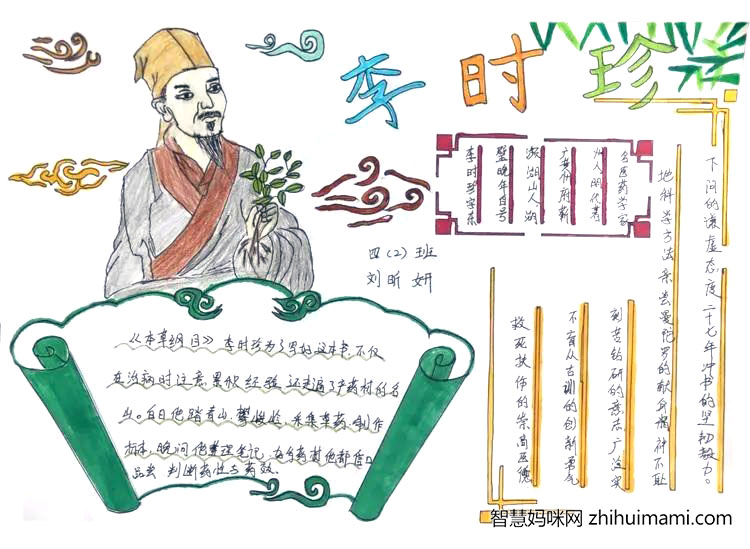 李时珍
李时珍字东
璧晚年自号
濒湖山人湖
广黄州府蕲
州人明代著
名医药学家
四(2)班
刘昕妍
《本草纲目》李时珍为了写好这本书,不仅
在治病时注意累积经验,还走遍了产药材的名
山。白日他踏青山,攀峻岭,采集草药,制作
标本,晚间他整理笔记,
品尝 判断药性与药效。
救死扶伤的崇高医德
不盲从古训的创新勇气
刻苦钻研的意志广泛实
地科学方法亲尝曼陀罗的献身精神不耻
下问的谦虚态度二十七年冲书的坚韧毅力。
智慧妈咪网 zhihuimami.com